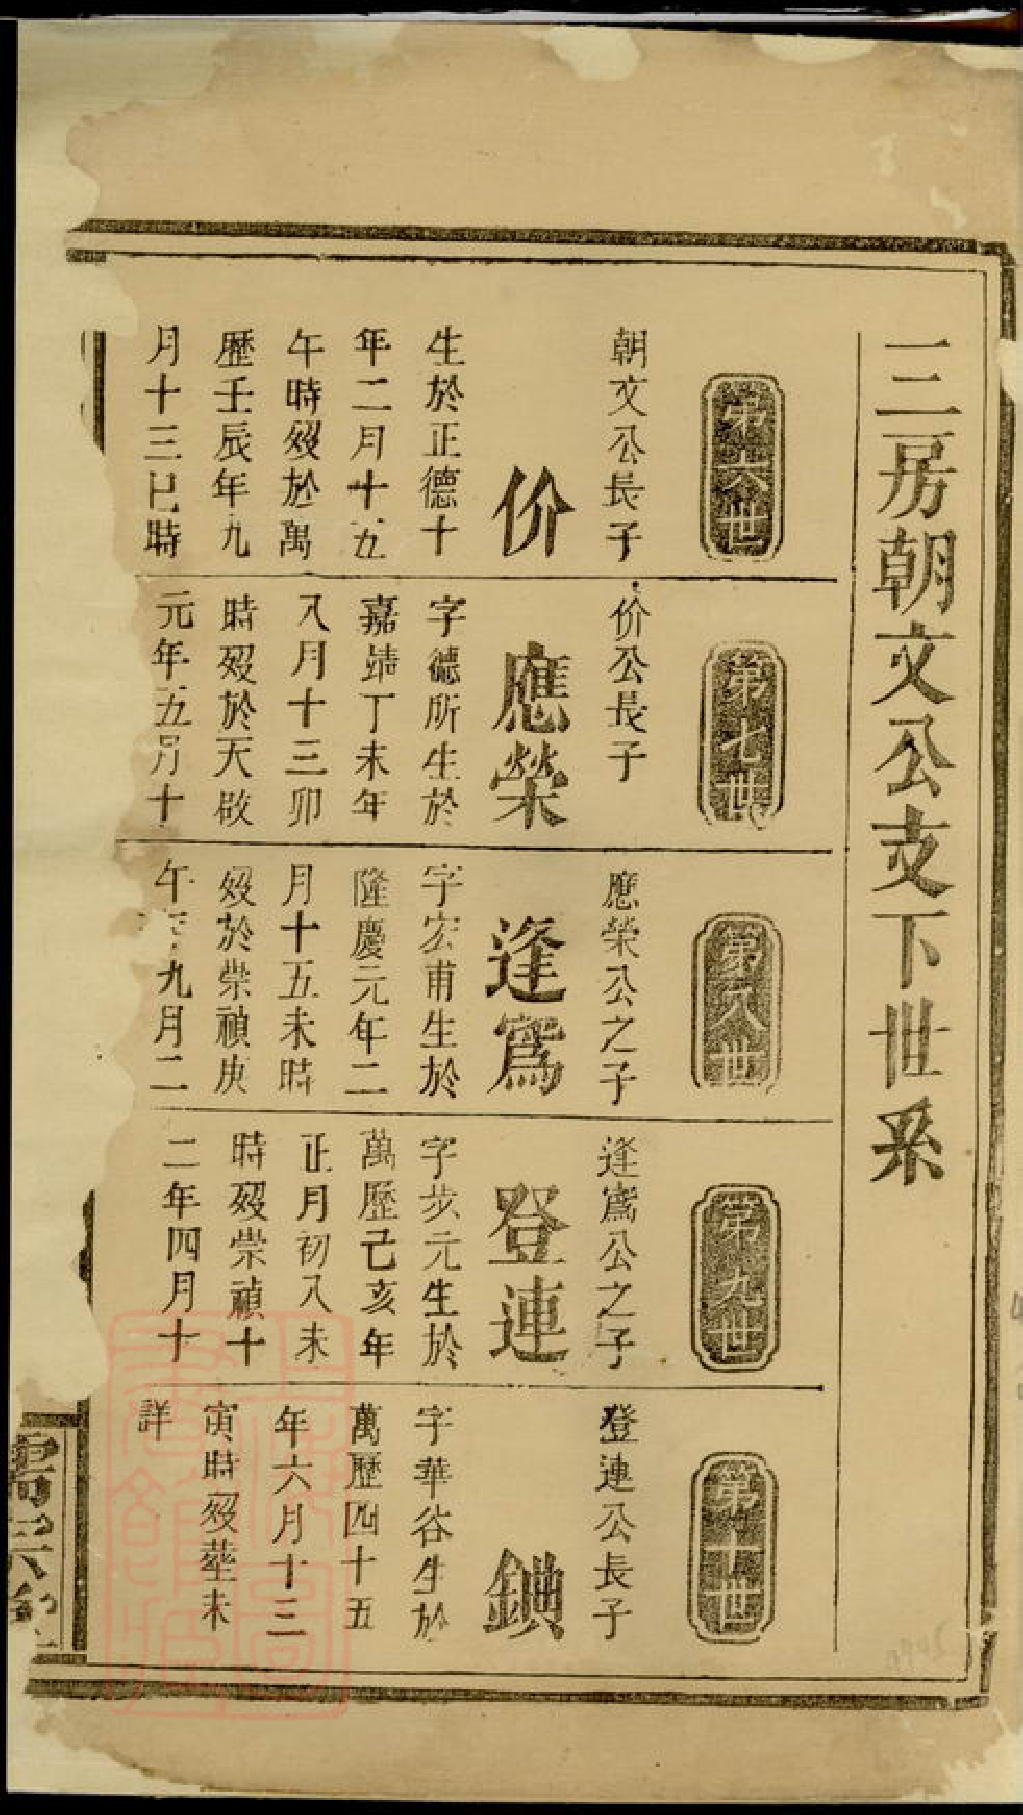 三房朝文公支下世系
第六世
朝文公長子
价
生於正德十
年二月十五
午時歿於萬
歷壬辰年九
月十三巳時
第七世
价公長子
應榮
字德所生於
嘉靖丁未年
八月十三卯
時歿於天啟
元年五月十
第八世
應榮公之子
逢鴬
字宏甫生於
隆慶元年二
月十五未時
歿於崇禎庚
午年九月二
第九世
逢鴬公之子
登連
字步元生於
萬歷己亥年
正月初八未
時歿崇禎十
二年四月十
第十世
登連公長子
鎖
字華谷生於
萬歷四十五
年六月十三
寅時歿塟未
詳